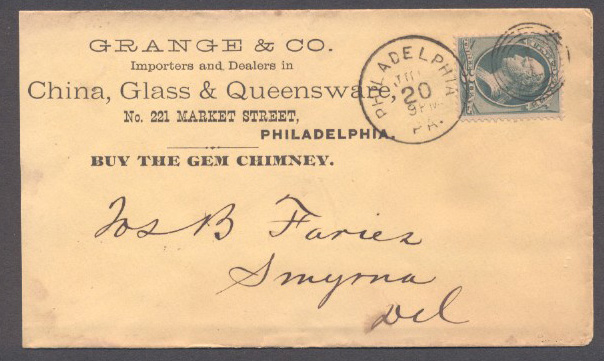 GRANGE & CO.
Importers and Dealers in
China, Glass & Queensware,
No. 221 MARKET STREET,
PHILADELPHIA.
BUY THE GEM CHIMNEY.
PHILADELPHIA
20
PA.
Jos B Faries
Smyrna
Del